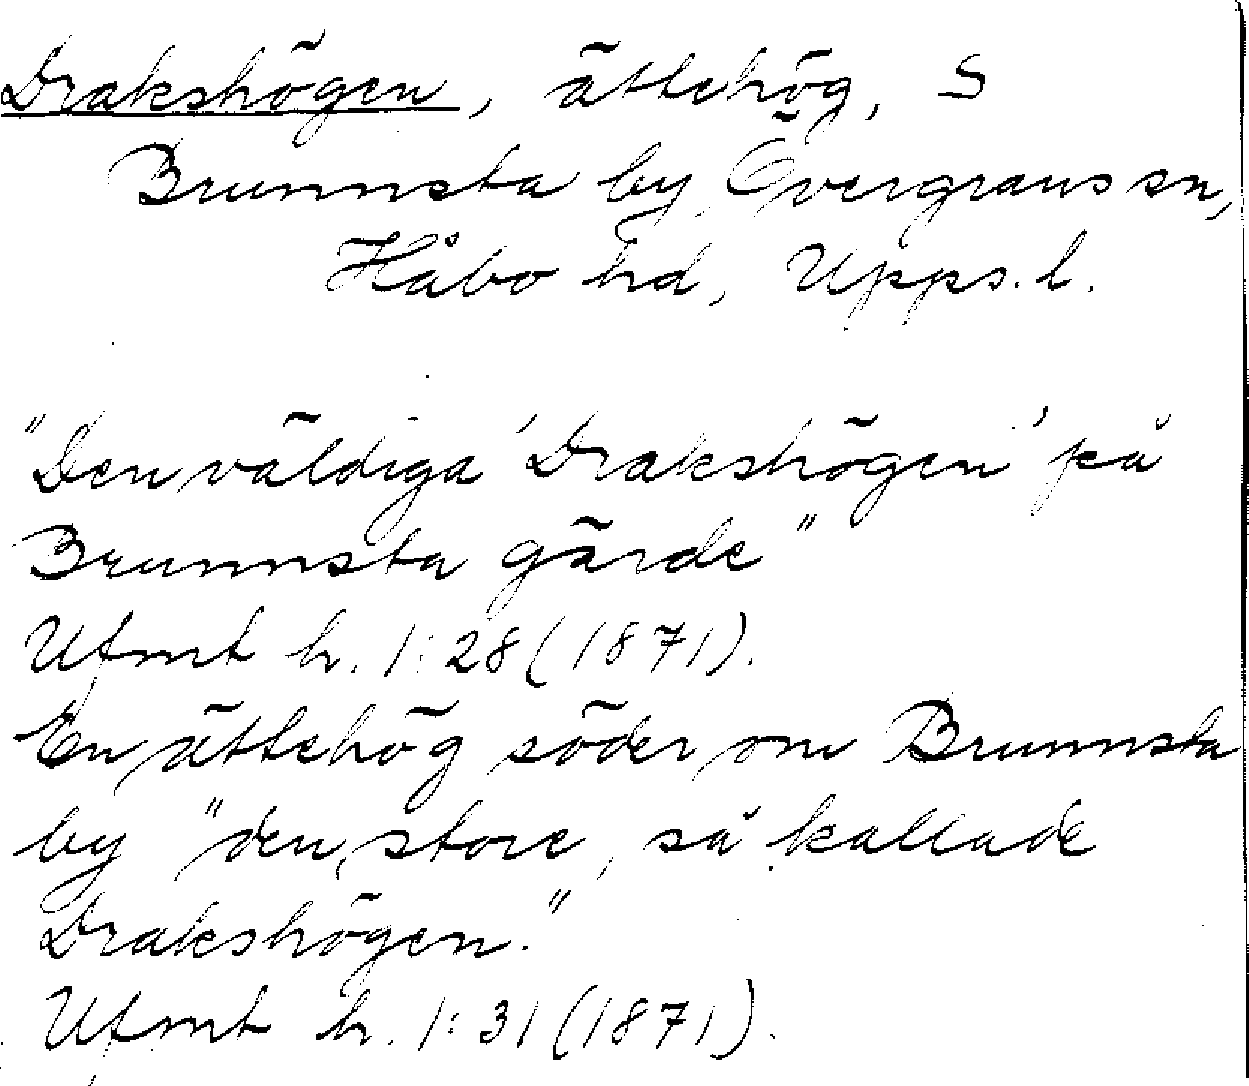 Drakshögen, ättehög, S
Brunnsta by, Övergrans sn,
Håbo hd, Upps. l.
"Den väldiga 'Drakshögen' på
Brunnsta gärde"
Ufmt h. 1:28 (1871).
En ättehög söder om Brunnsta
by "den store, så kallade
Drakshögen."
Ufmt h. 1:31 (1871).